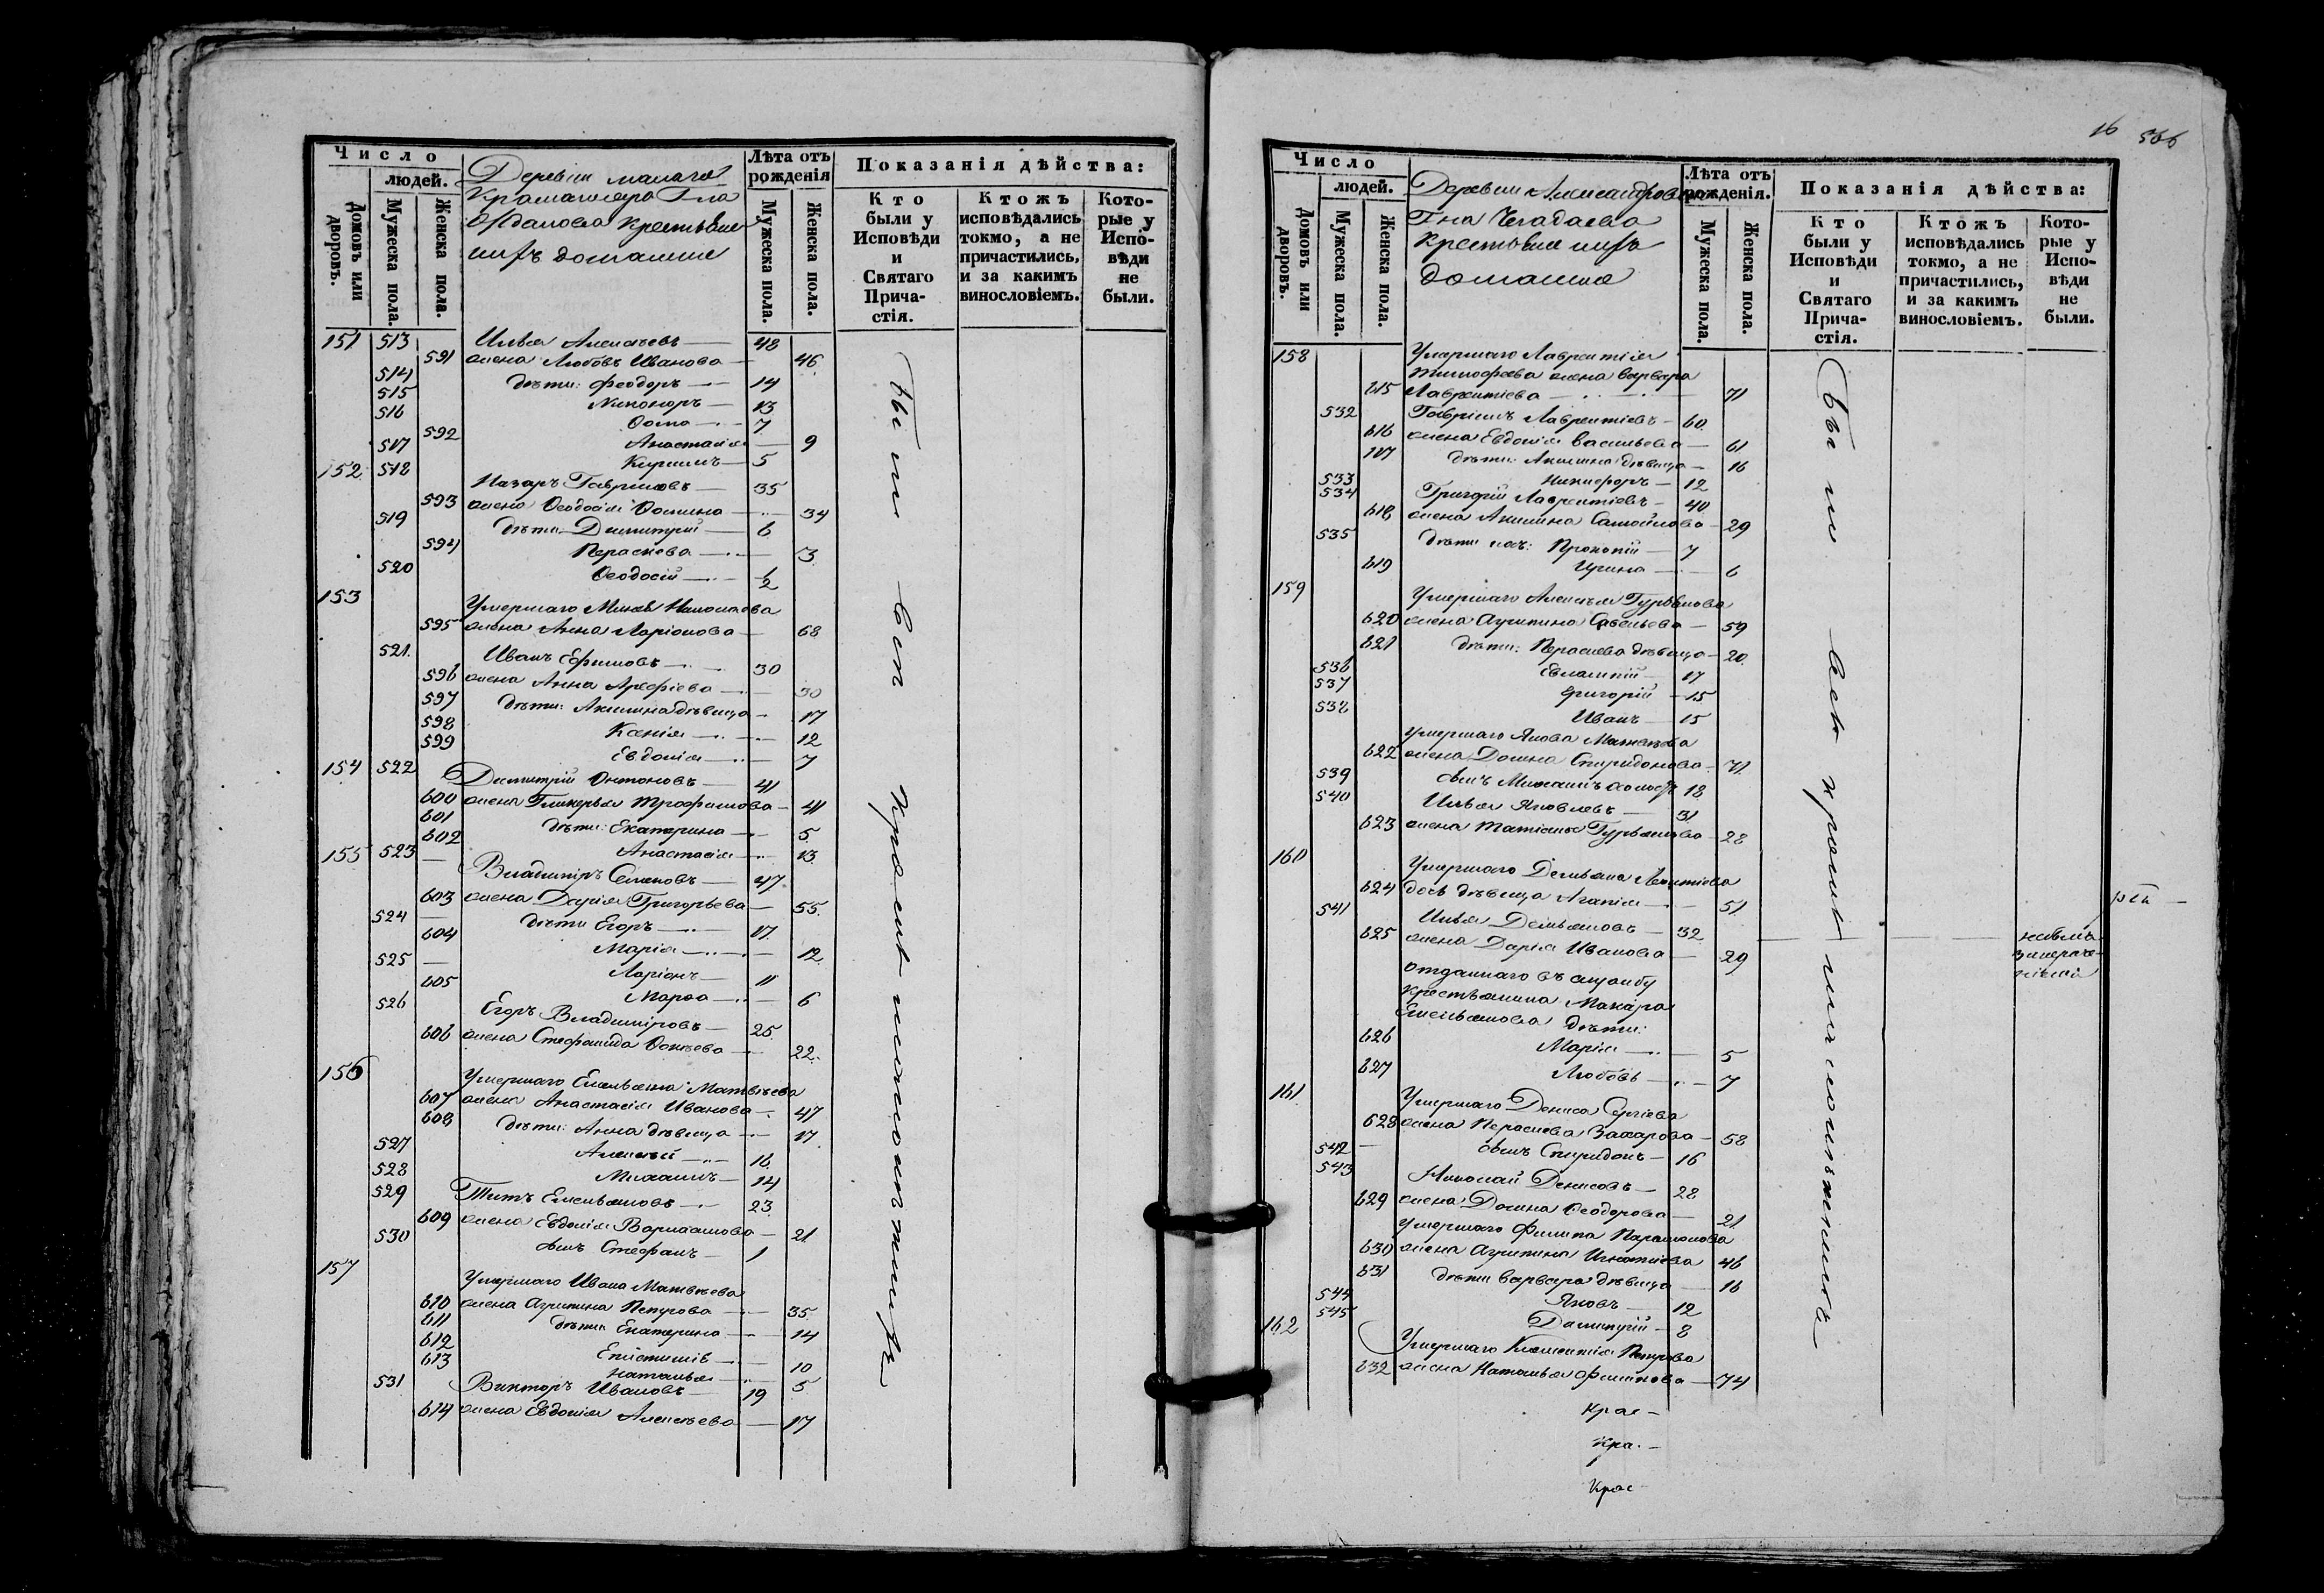 Число
людей.
Домовъ или дворовъ.
Мужеска пола.
Женска пола.
Деревни малаго
Крестьяне
ихъ домашніе
Лѣта отъ рожденія
Мужеска пола.
Женска пола.
Показанія дѣйства:
Кто были у Исповѣди и Святаго Прича-
стія.
Ктожъ исповѣдались токмо, а не причастились, и за какимъ винословіемъ.
Кото-
рые у Испо-
вѣди не были.
151 513 Илья Алексѣевъ — 48
591 жена Любовь Иванова — 46
514 дѣти: Феодоръ — 14
515 Никоноръ — 13
516 Ѳома — 7
592 Анастасія — 9
517 Кирилъ — 5
152 518 Назаръ Гавриловъ — 35
593 жена Ѳеодосія Ѳомина — 34
519 дѣти: Димитрій — 6
594 Параскева — 3
520 Ѳеодосій — 1/2
153 Умершаго Николаева
595 жена Анна Ларіонова — 68
521 Иванъ Ефимовъ — 30
596 жена Анна Арефіева — 30
597 дѣти: Акилина дѣвица — 17
598 Ксенія — 12
599 Евдокія — 7
154 522 Димитрій Антоновъ — 41
600 жена Гликерья Трофимова — 41
601 дѣти: Екатерина — 5
602 Анастасія — 13
155 523 Владиміръ Семеновъ — 47
603 жена Дарія Григорьева — 55
524 дѣти Егоръ — 17
604 Марія — 12
525 Ларіонъ — 11
605 Марѳа — 6
526 Егоръ Владиміровъ — 25
606 жена Стефанида Фокеева — 22
156 Умершаго Емельяна Матвѣева
607 жена Анастасія Иванова — 47
608 дѣти: Анна дѣвица — 17
527 Алексѣй — 16
528 Михаилъ — 14
529 Титъ Емельяновъ — 23
609 жена Евдокія Варлаамова — 21
530 сынъ Стефанъ — 1
157 Умершаго Ивана Матвѣева
610 жена Агрипина Петрова — 35
611 дѣти Екатерина — 14
612 Епистимія — 10
613 Наталья — 5
531 Викторъ Ивановъ — 19
614 жена Евдокія Алексѣева — 17
Были вси кромѣ
16 566
Число
людей.
Домовъ или дворовъ.
Мужеска пола.
Женска пола.
Деревни Александровки
Гна Чегадаева
крестьяне ихъ
домашніе
Лѣта отъ рожденія.
Мужеска пола.
Женска пола.
Показанія дѣйства:
Кто были у Исповѣди и Святаго Прича-
стія.
Ктожъ исповѣдались токмо, а не причастились, и за какимъ винословіемъ.
Кото-
рые у Испо-
вѣди не были.
158 Умершаго Лаврентія
Тимофеева жена Варвара
615 Лаврентіева — 71
532 Гавріилъ Лаврентіевъ — 60
616 жена Евдокія Васильева — 61
117 дѣти: Акилина дѣвица — 16
533 Никифоръ — 12
534 Григорій Лаврентіевъ — 40
618 жена Акилина Самойлова — 29
535 дѣти ихъ: Прокопій — 7
619 Ирина — 6
159 Умершаго Алексѣя Гурьянова
620 жена Агрипина Савельева — 59
621 дѣти: Параскева дѣвица — 20
536 Евлампій — 17
537 Григорій — 15
538 Иванъ — 15
умершаго Якова Матвѣева
622 жена Домна Спиридонова — 71
539 сынъ Михаилъ холостъ 18
540 Илья Яковлевъ — 31
623 жена Татіана Гурьянова — 28
160 Умершаго Демьяна Леонтіева
624 дочь дѣвица Агапія — 51
541 Илья Демьяновъ — 32
625 жена Дарія Иванова — 29
отданнаго въ службу
крестьянина Макара
Емельянова дѣти:
626 Марія — 5
627 Любовь — 7
161 Умершаго Дениса Сергіева
628 жена Параскева Захарова — 58
542 сынъ Спиридонъ — 16
543 Николай Денисовъ — 28
629 жена Домна Ѳеодорова — 21
умершаго Филипа Парамонова
630 жена Агрипина Игнатіева 46
631 дѣти Варвара дѣвица — 16
544 Яковъ — 12
545 Димитрій — 8
162 Умершаго Климентія Петрова
632 жена Наталья Филипова — 74
Крас —
Кра. —
Крас
Были всѣ кромѣ